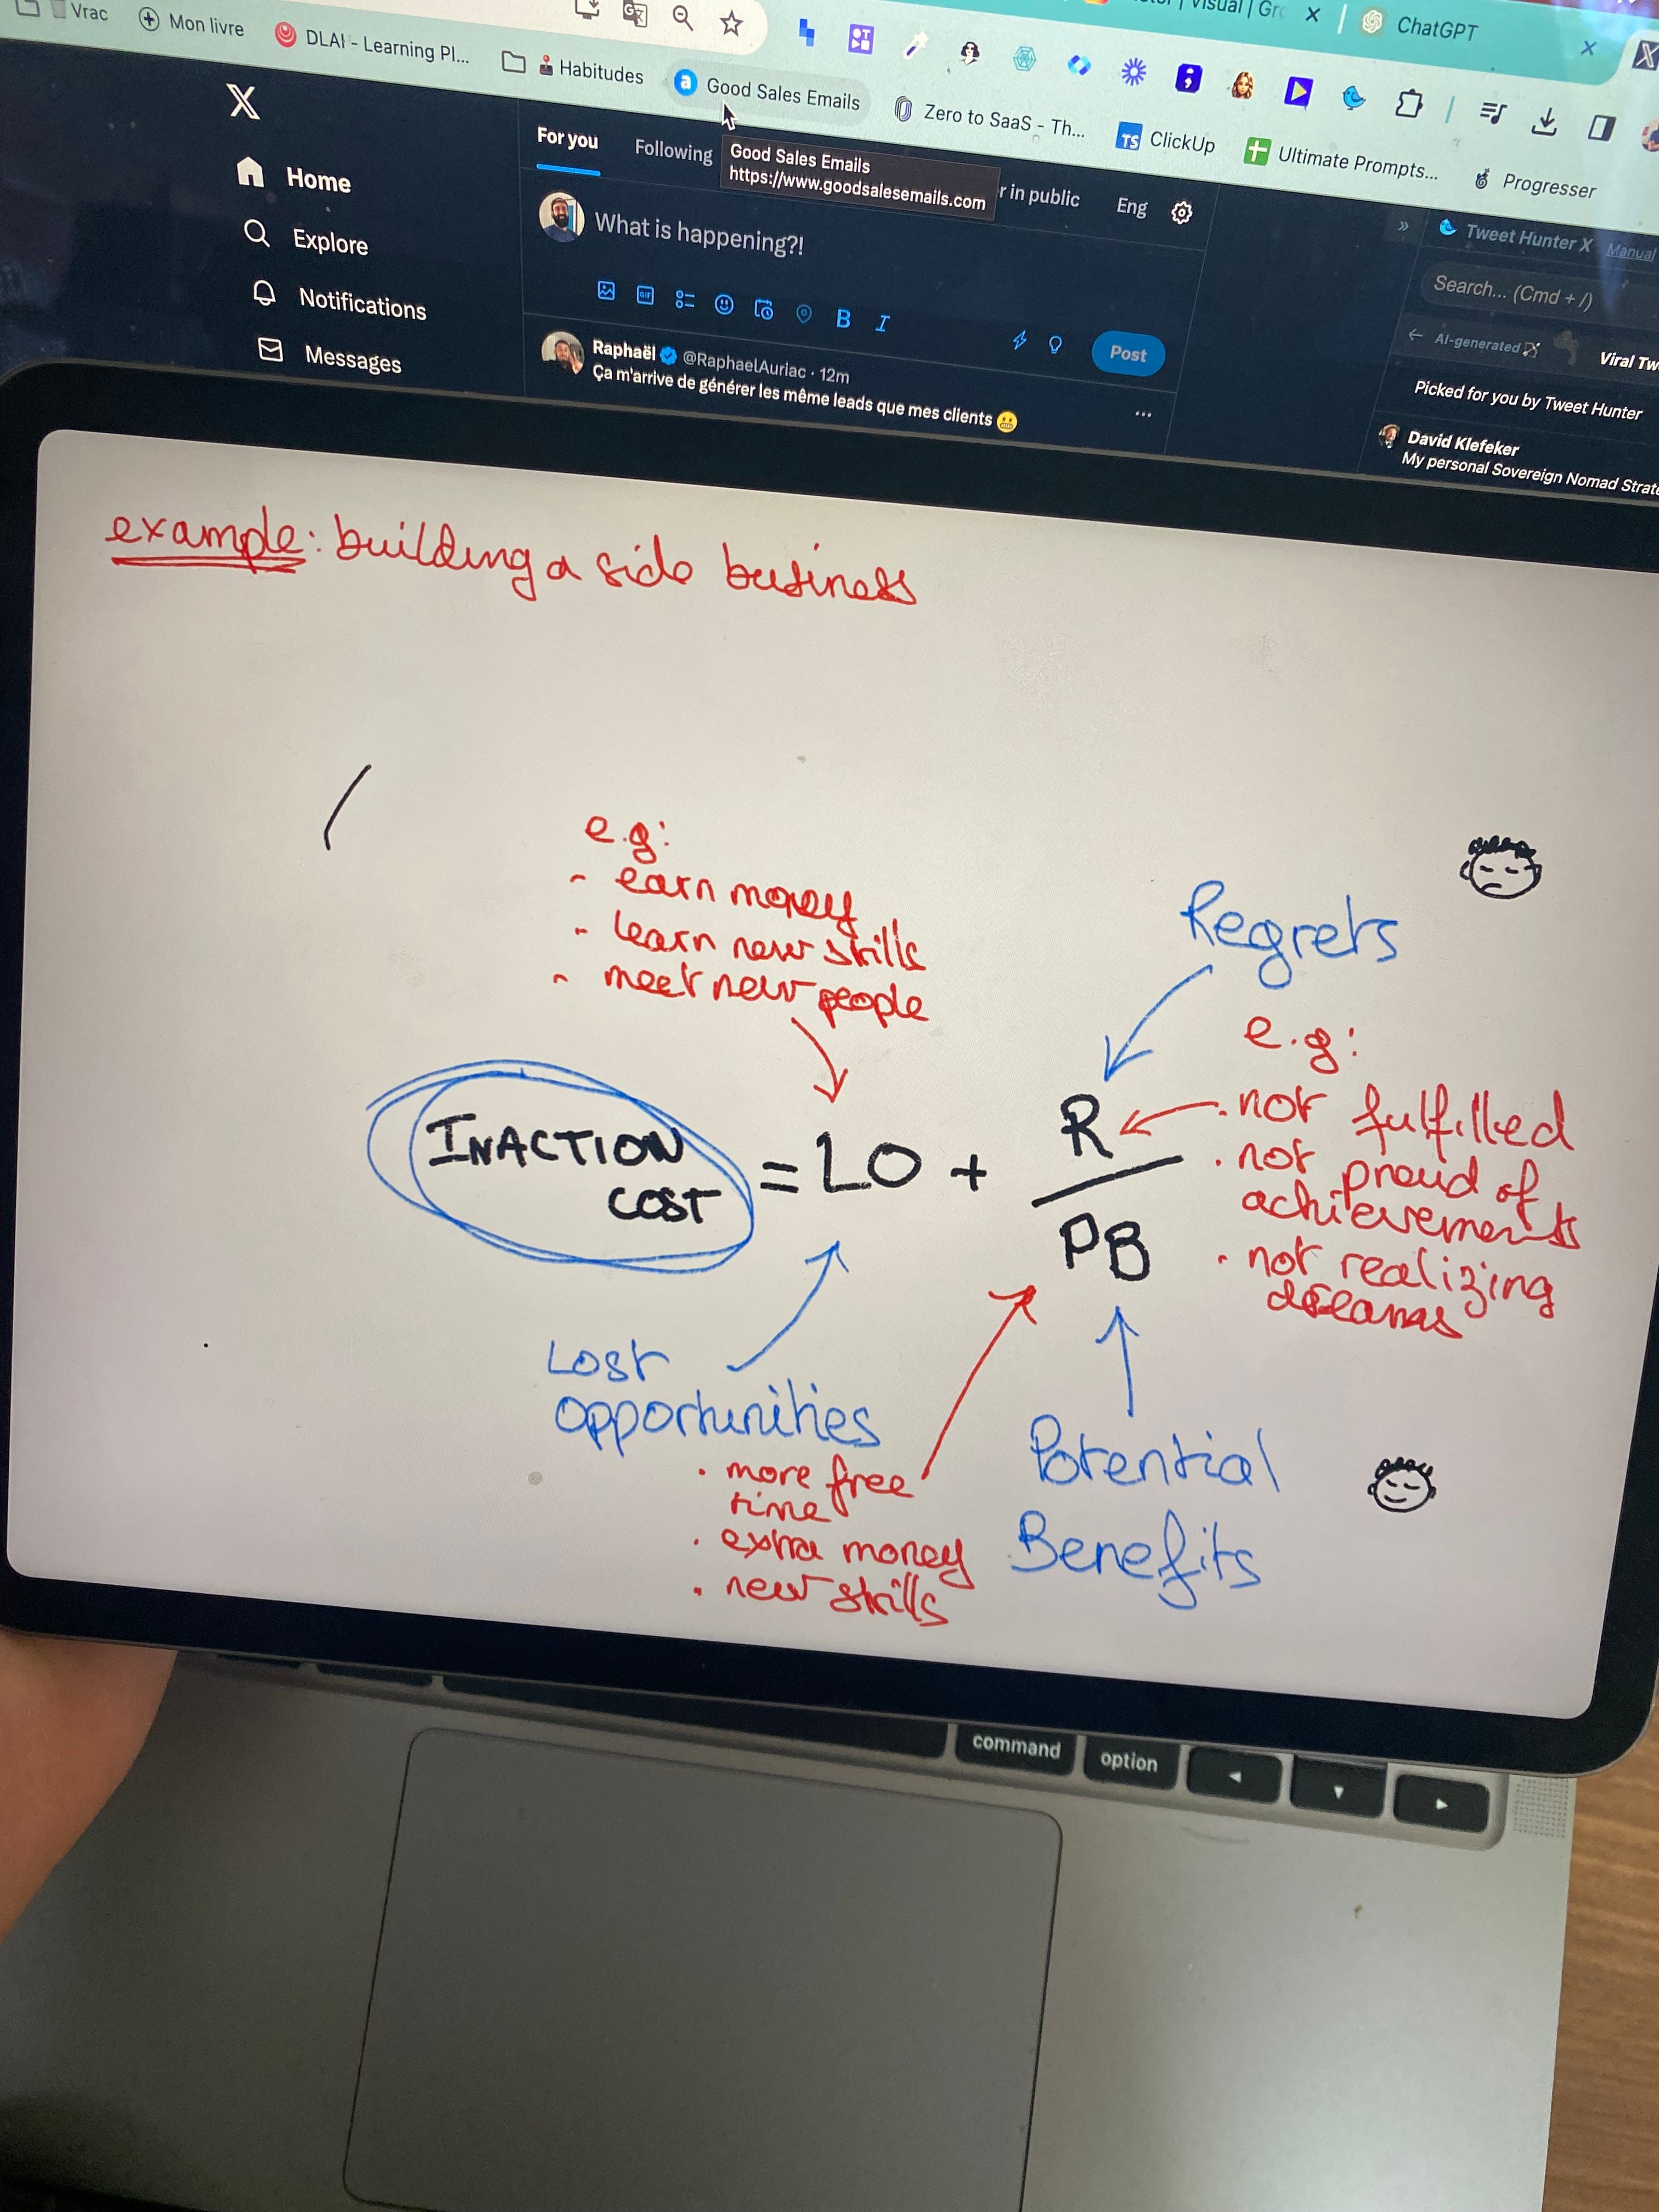 Vrac
Mon livre
DLAI - Learning Pl...
Habitudes
Good Sales Emails
Zero to SaaS - Th...
ClickUp
Ultimate Prompts...
Progresser
Visual | Gr
ChatGPT
Home
Explore
Notifications
Messages
For you
Following
Good Sales Emails
https://www.goodsalesemails.com
r in public
Eng
What is happening?!
GIF
B I
Post
Raphaël @RaphaelAuriac · 12m
Ça m'arrive de générer les même leads que mes clients
Tweet Hunter X Manual
Search... (Cmd + /)
AI-generated
Viral Tw
Picked for you by Tweet Hunter
David Klefeker
My personal Sovereign Nomad Strate
example: building a side business
e.g:
- earn money
- learn new skills
- meet new people
Regrets
e.g:
. not fulfilled
. not proud of
achievements
. not realizing
dreams
INACTION
COST
= LO +
R
PB
Lost
opportunities
. more free
time
. extra money
. new skills
Potential
Benefits
command
option